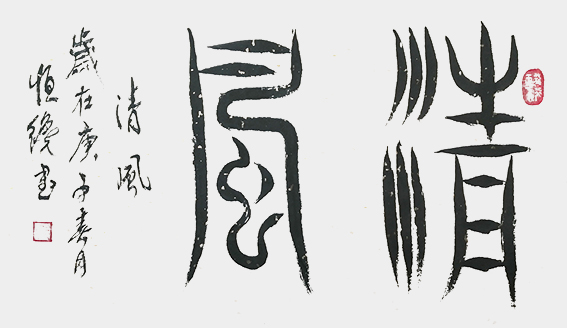 清風
清風
歲在庚子春月
恒
書